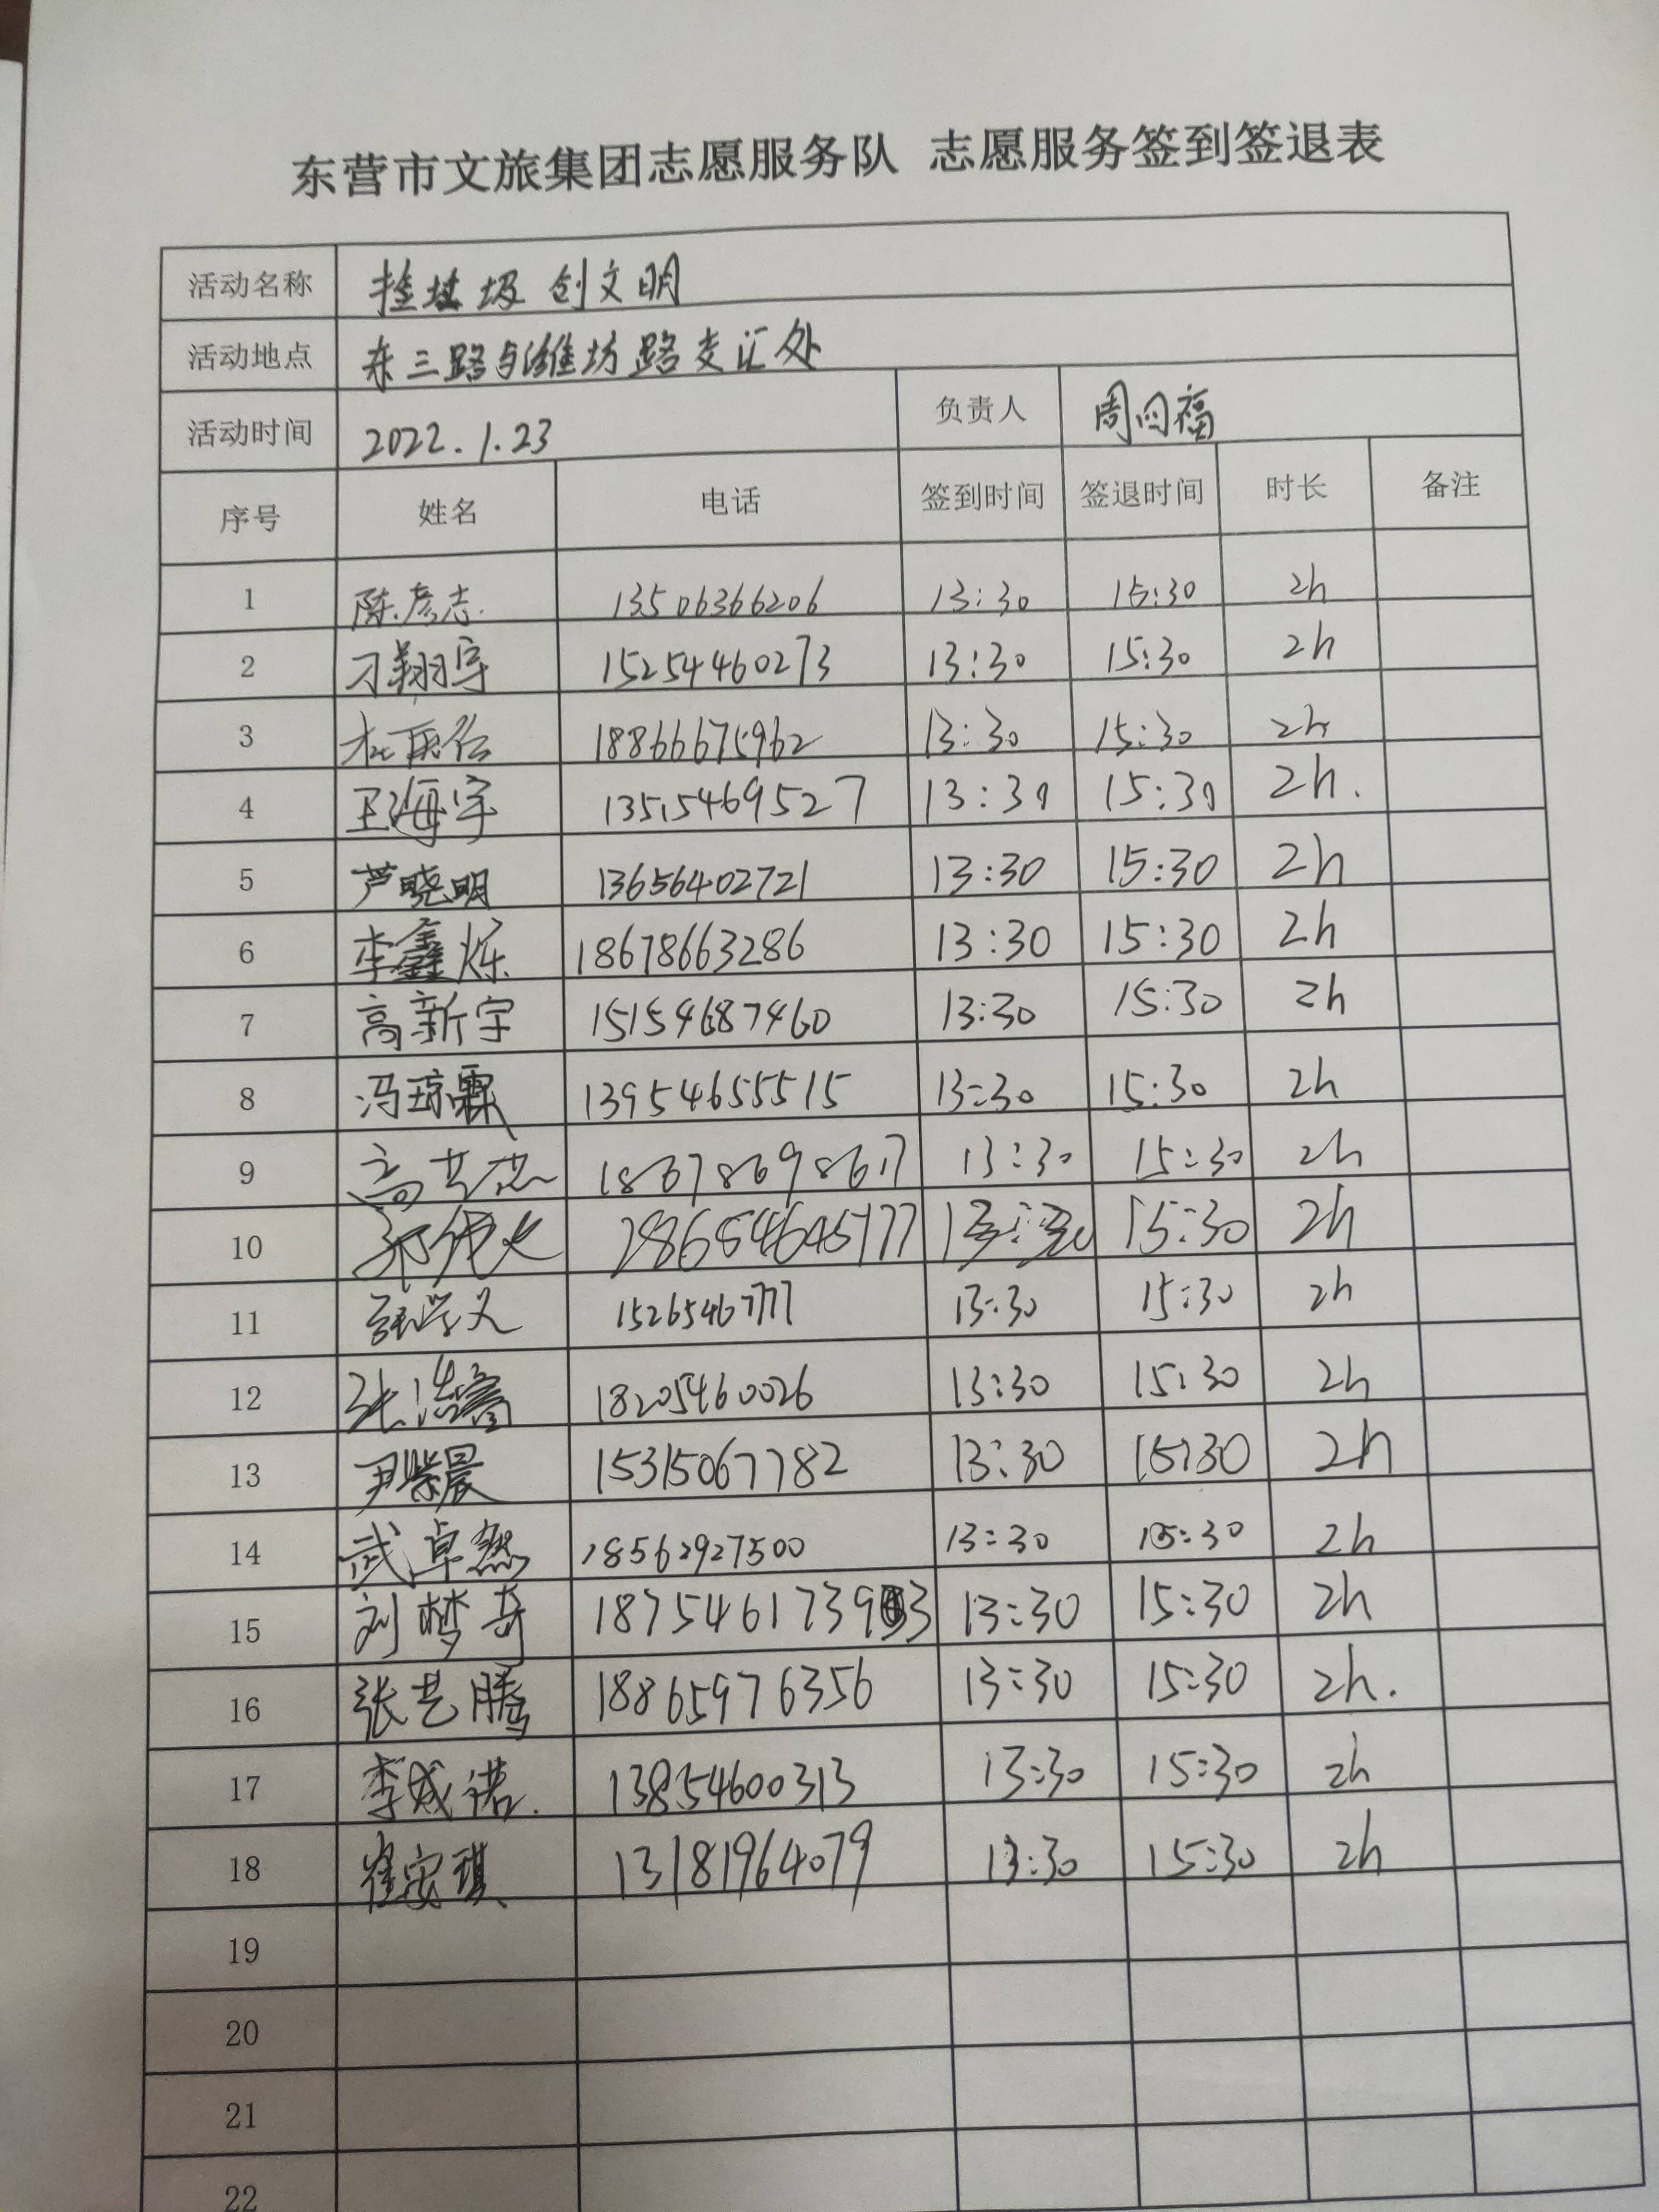 东营市文旅集团志愿服务队 志愿服务签到签退表
活动名称 捡垃圾 创文明
活动地点 东三路与潍坊路交汇处
活动时间 2022.1.23 负责人 周四福
序号 姓名 电话 签到时间 签退时间 时长 备注
1 陈彦志 13506366206 13:30 15:30 2h
2 刁翔宇 15254460273 13:30 15:30 2h
3 18866675962 13:30 15:30 2h
4 卫海宇 13515469527 13:30 15:30 2h.
5 芦晓明 13656402721 13:30 15:30 2h
6 李鑫烁 18678663286 13:30 15:30 2h
7 高新宇 15154687460 13:30 15:30 2h
8 冯琼霖 13954655515 13:30 15:30 2h
9 18678698617 13:30 15:30 2h
10 13:30 15:30 2h
11 15265467777 13:30 15:30 2h
12 18205460026 13:30 15:30 2h
13 尹紫晨 15315067782 13:30 15:30 2h
14 武卓然 18562927500 13:30 15:30 2h
15 刘梦奇 13:30 15:30 2h
16 张艺腾 18865976356 13:30 15:30 2h.
17 李成诺. 13854600313 13:30 15:30 2h
18 崔宏琪 13181964079 13:30 15:30 2h
19
20
21
22